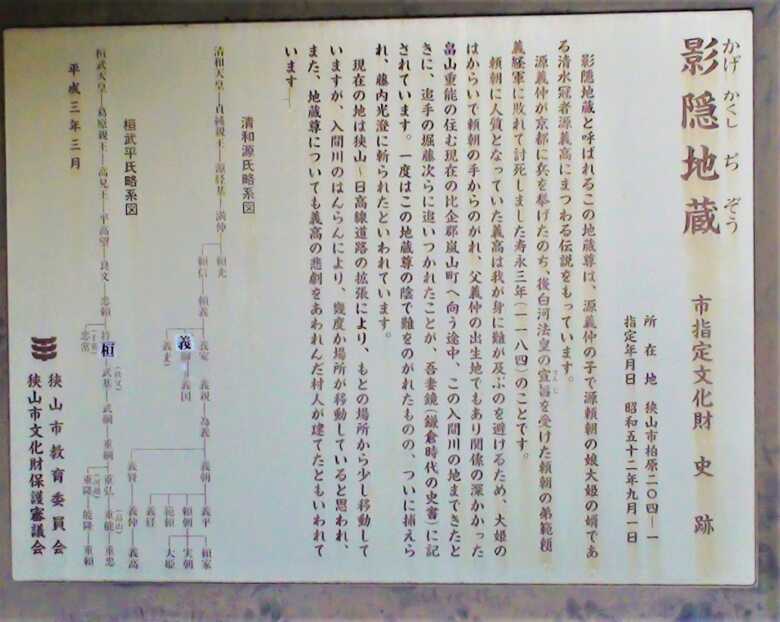 影隠地蔵
かげかくしぢぞう
市指定文化財 史跡
所在地 狭山市柏原二〇四―一
指定年月日 昭和五十二年九月一日
影隠地蔵と呼ばれるこの地蔵尊は、源義仲の子で源頼朝の娘大姫の婿であ
る清水冠者源義高にまつわる伝説をもっています。
源義仲が京都に兵を挙げたのち、後白河法皇の宣旨を受けた頼朝の弟範頼
せんじ
義経軍に敗れて討死しました寿永三年(一一八四)のことです。
頼朝に人質となっていた義高は我が身に難が及ぶのを避けるため、大姫の
はからいで頼朝の手からのがれ、父義仲の出生地でもあり関係の深かかった
畠山重能の住む現在の比企郡嵐山町へ向う途中、この入間川の地まできたと
きに、追手の堀藤次らに追いつかれたことが、吾妻鏡(鎌倉時代の史書)に記
されています。一度はこの地蔵尊の陰で難をのがれたものの、ついに捕えら
れ、藤内光澄に斬られたといわれています。
現在の地は狭山～日高線道路の拡張により、もとの場所から少し移動して
いますが、入間川のはんらんにより、幾度か場所が移動していると思われ、
また、地蔵尊についても義高の悲劇をあわれんだ村人が建てたともいわれて
います
清和源氏略系図
清和天皇―貞純親王―源経基―満仲
頼光
頼信―頼義
義家―義親―為義
義―義国
義光
義朝
義賢―義仲―義高
義平
頼朝
範頼
義経
頼家
実朝
大姫
桓武平氏略系図
桓武天皇―葛原親王―高見王―平高望―良文―忠頼
忠常
(千葉)
桓―武基―武綱―重綱
(秩父)
重弘―重能―重忠
(畠山)
重隆―能隆―重頼
(河越)
平成三年三月
狭山市教育委員会
狭山市文化財保護審議会